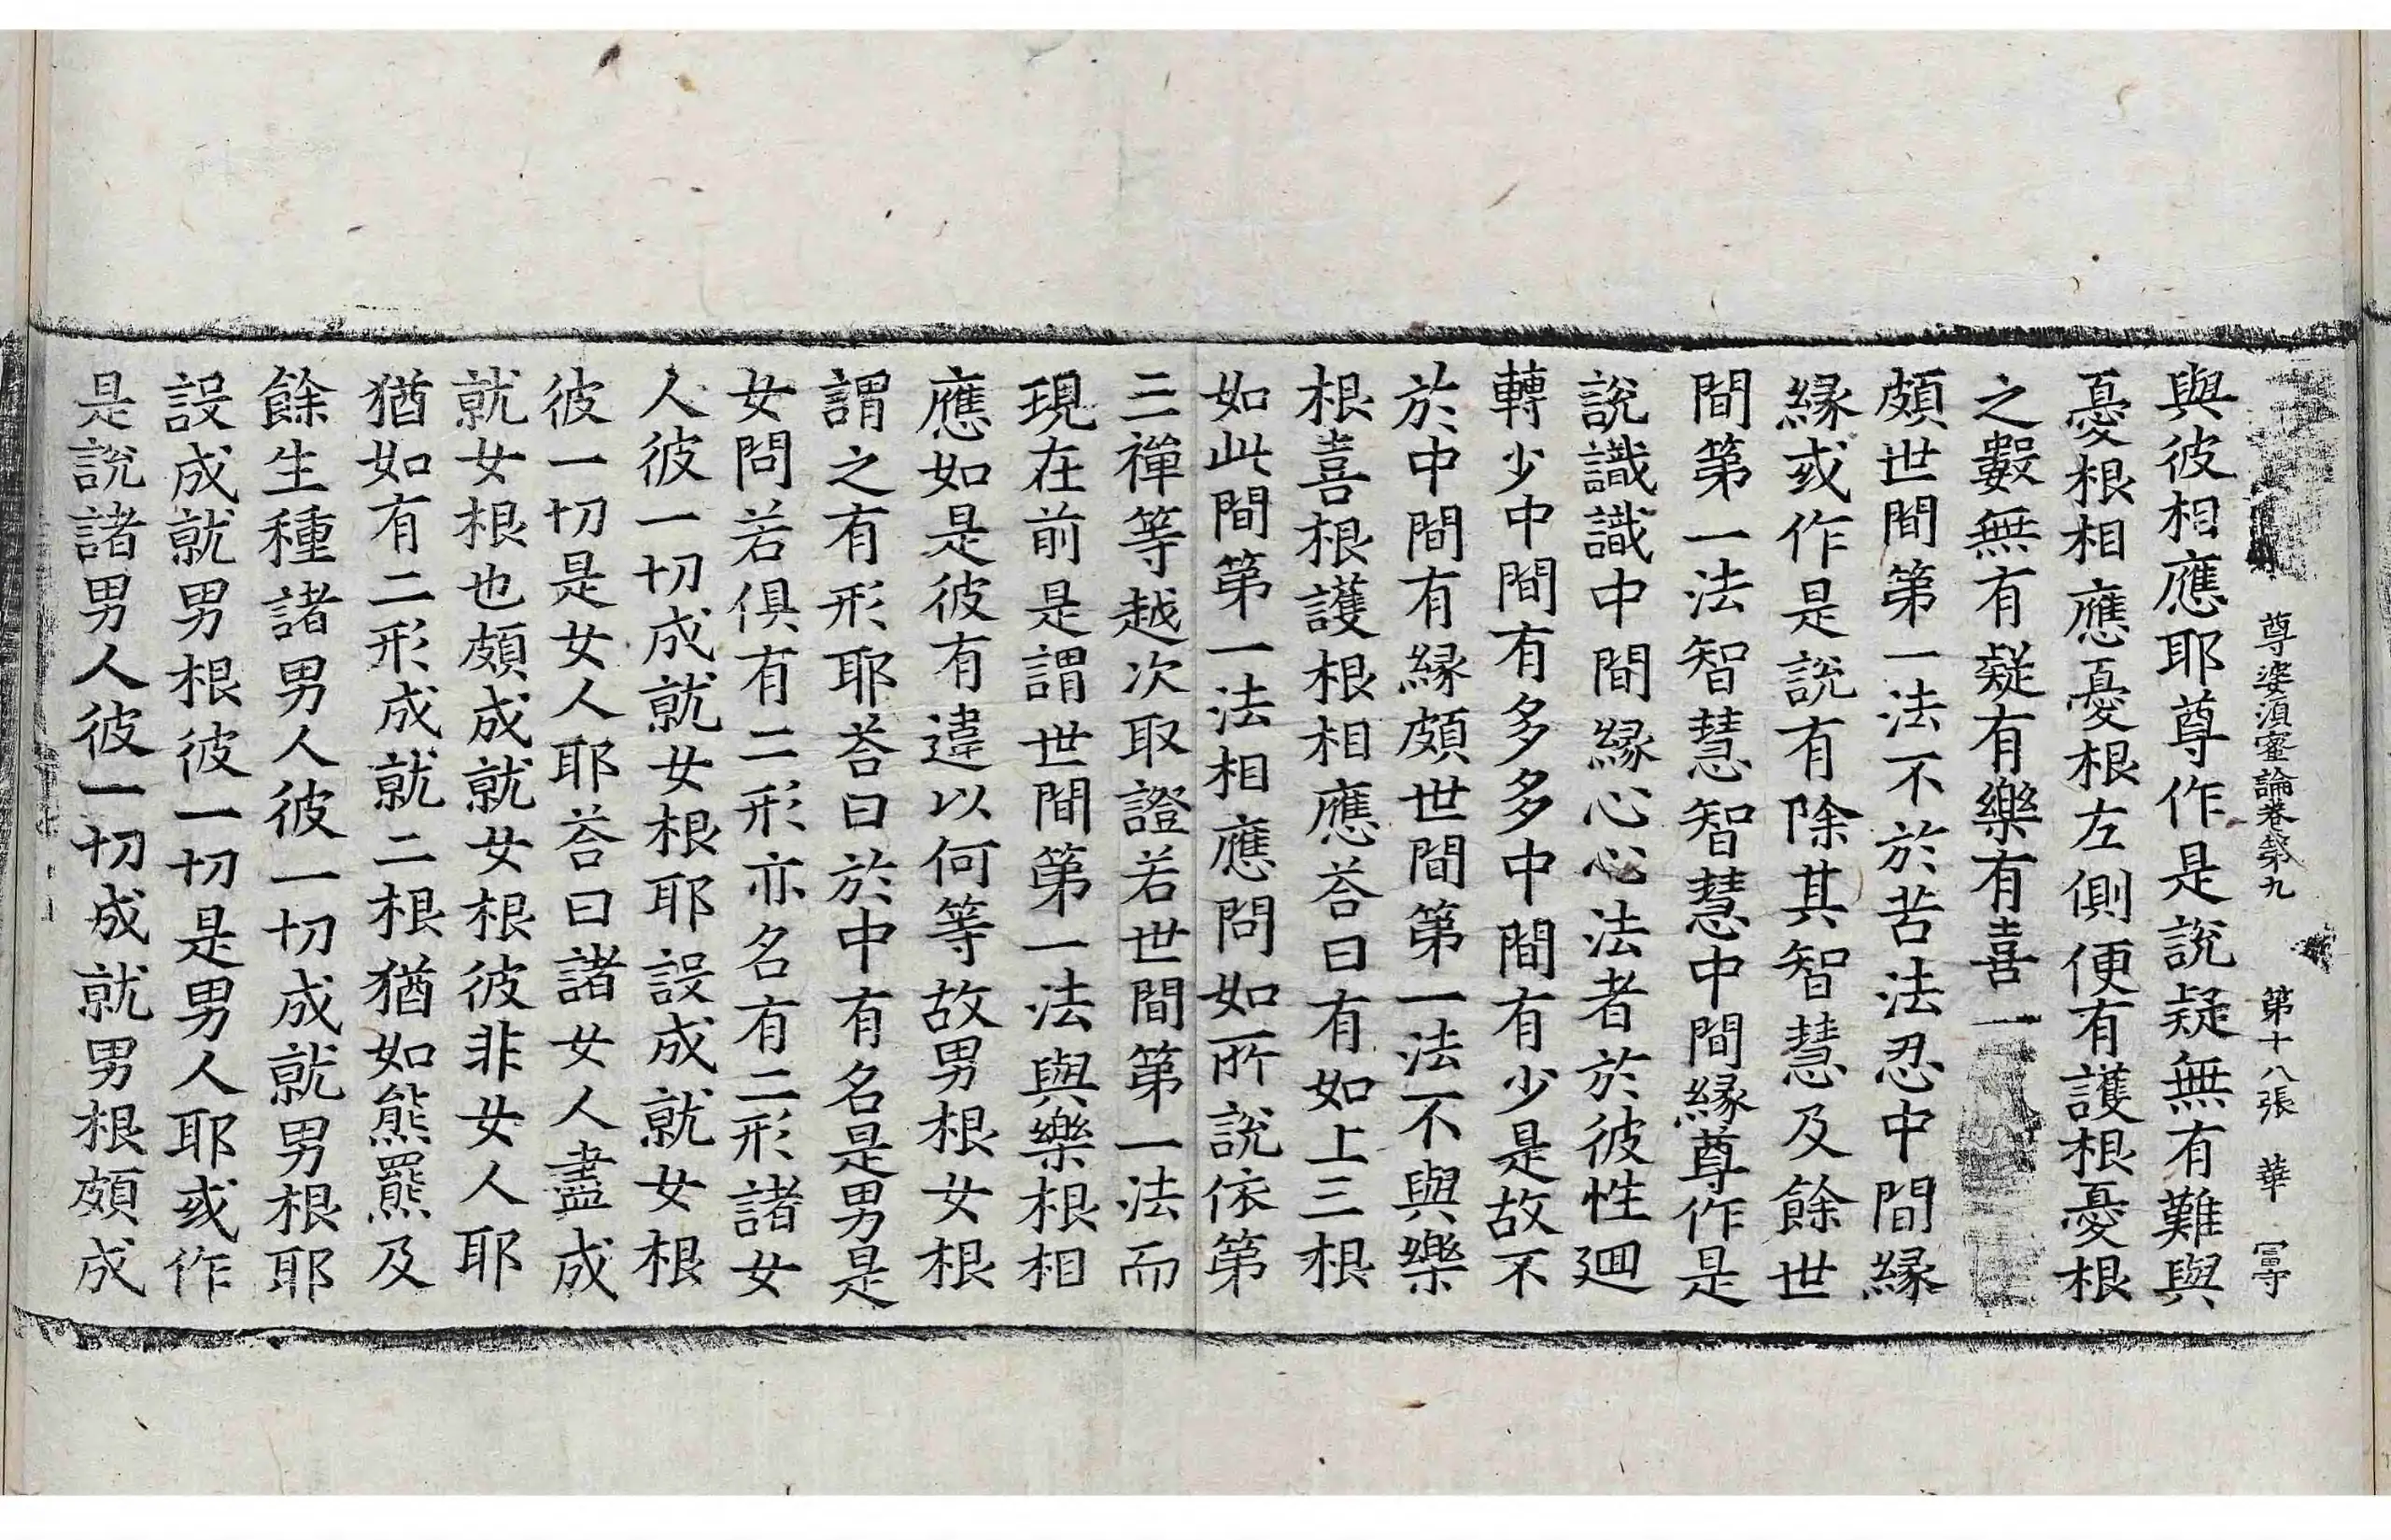 尊婆湏蜜論卷第九 第十八張 華 冨寺
與彼相應耶尊作是說疑無有難與
憂根相應憂根左側便有護根憂根
之數無有疑有樂有喜一
頗世間第一法不於苦法忍中間縁
縁或作是說有除其智慧及餘世
間第一法智慧智慧中間縁尊作是
說識識中間縁心心法者於彼性迴
轉少中間有多多中間有少是故不
於中間有縁頗世間第一法不與樂
根喜根護根相應荅曰有如上三根
如此間第一法相應問如所說依第
三禪等越次取證若世間第一法而
現在前是謂世間第一法與樂根相
應如是彼有違以何等故男根女根
謂之有形耶荅曰於中有名是男是
女問若俱有二形亦名有二形諸女
人彼一切成就女根耶設成就女根
彼一切是女人耶荅曰諸女人盡成
就女根也頗成就女根彼非女人耶
猶如有二形成就二根猶如熊羆及
餘生種諸男人彼一切成就男根耶
設成就男根彼一切是男人耶或作
是說諸男人彼一切成就男根頗成